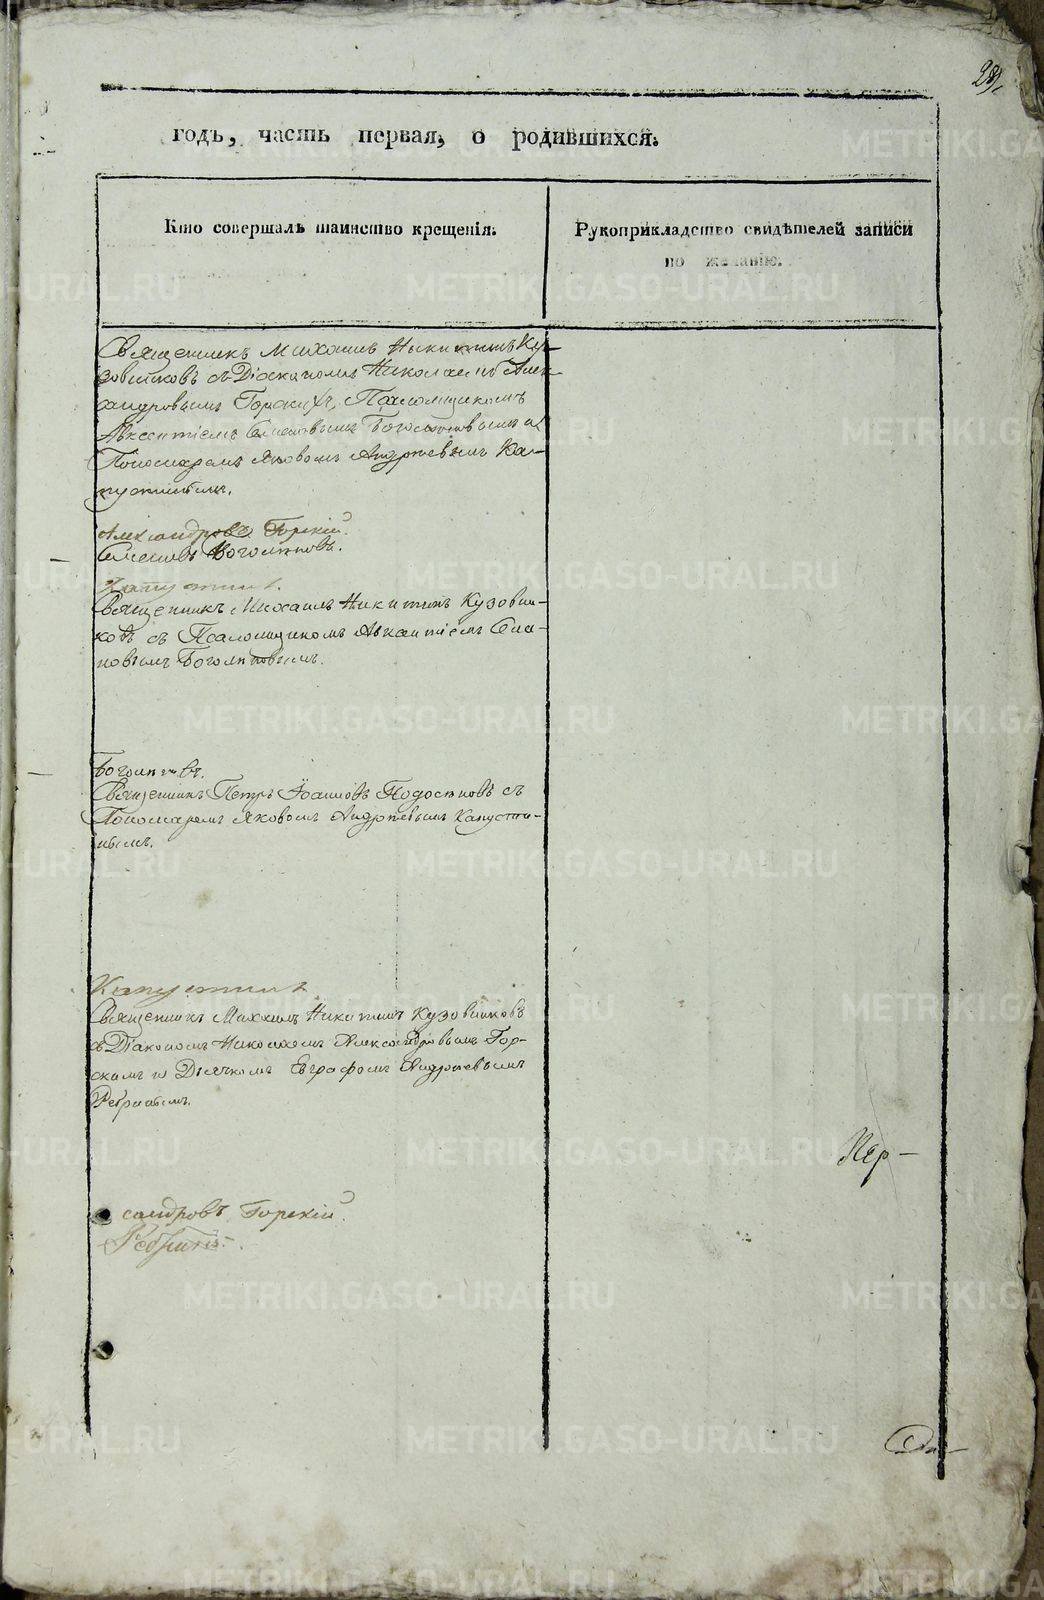 29,
годъ, часть первая, о родившихся.
Кто совершалъ таинство крещенія.
Рукоприкладство свидѣтелей записи
по желанію.
Священникъ Михаилъ Никитинъ Ку-
зовниковъ съ Діакономъ Николаемъ Алек-
сандровымъ Горскимъ, Псаломщикомъ
Авксентіемъ Семеновымъ Боголѣповымъ и
Пономаремъ Яковомъ Андреевымъ Ка-
пустинымъ.
Александровъ Горскій.
Семеновъ Боголѣповъ.
Капустинъ.
Священникъ Михаилъ Никитинъ Кузовни-
ковъ съ Псаломщикомъ Авксентіемъ Семе-
новымъ Боголѣповымъ.
Боголѣповъ.
Священникъ Петръ Іоанновъ съ
Пономаремъ Яковомъ Андреевымъ Капусти-
нымъ.
Капустинъ
Священникъ Михаилъ Никитинъ Кузовниковъ
съ Діакономъ Николаемъ Александровымъ Гор-
скимъ и Дьячкомъ Евграфомъ Андреевымъ
Ребринымъ.
Пер-
сандровъ Горскій.
Ребринъ.
METRIKI.GASO-URAL.RU